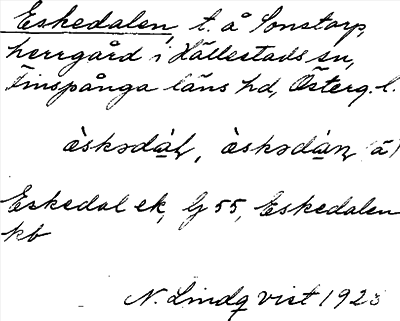 Eskedalen, t. å Sonstorp,
herrgård i Hällestads sn,
Finspånga läns hd, Österg. l.
èskədàl, èskədàn (ä)
Eskedal ek, G 55, Eskedalen
kb
N. Lindqvist 1923